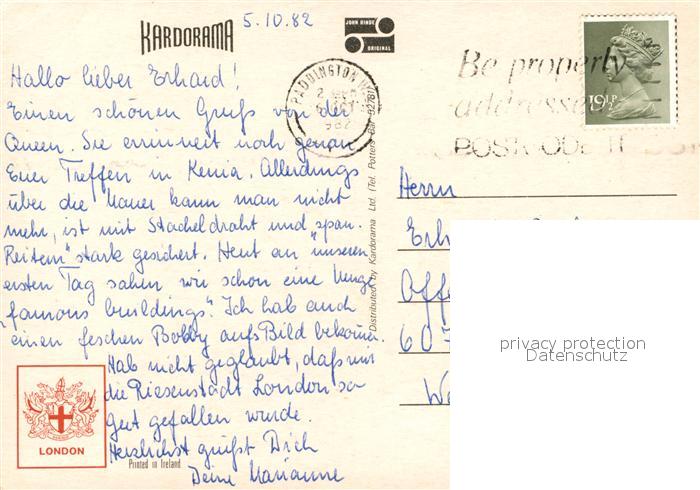 KARDORAMA
5.10.82
JOHN HINDE
ORIGINAL
PADDINGTON
Be properly
addressed
POSTCODE IT
19½P
Hallo lieber Erhard!
Einen schönen Gruß von der
Queen. Sie erinnert noch genau
Euer Treffen in Kenia. Allerdings
über die Mauer kann man nicht
mehr, ist mit Stacheldraht und "span.
Reitern" stark gesichert. Heut an unserem
ersten Tag sahen wir schon eine Menge
"famous buildings". Ich hab auch
einen feschen Bobby aufs Bild bekommen.
Hab nicht geglaubt, daß mir
die Riesenstadt London so
gut gefallen würde.
Herzlichst grüßt Dich
Deine Marianne
LONDON
Printed in Ireland
Distributed by Kardorama Ltd. (Tel. Potters Bar 52781)
Herrn
Erh
Offe
607
privacy protection
Datenschutz